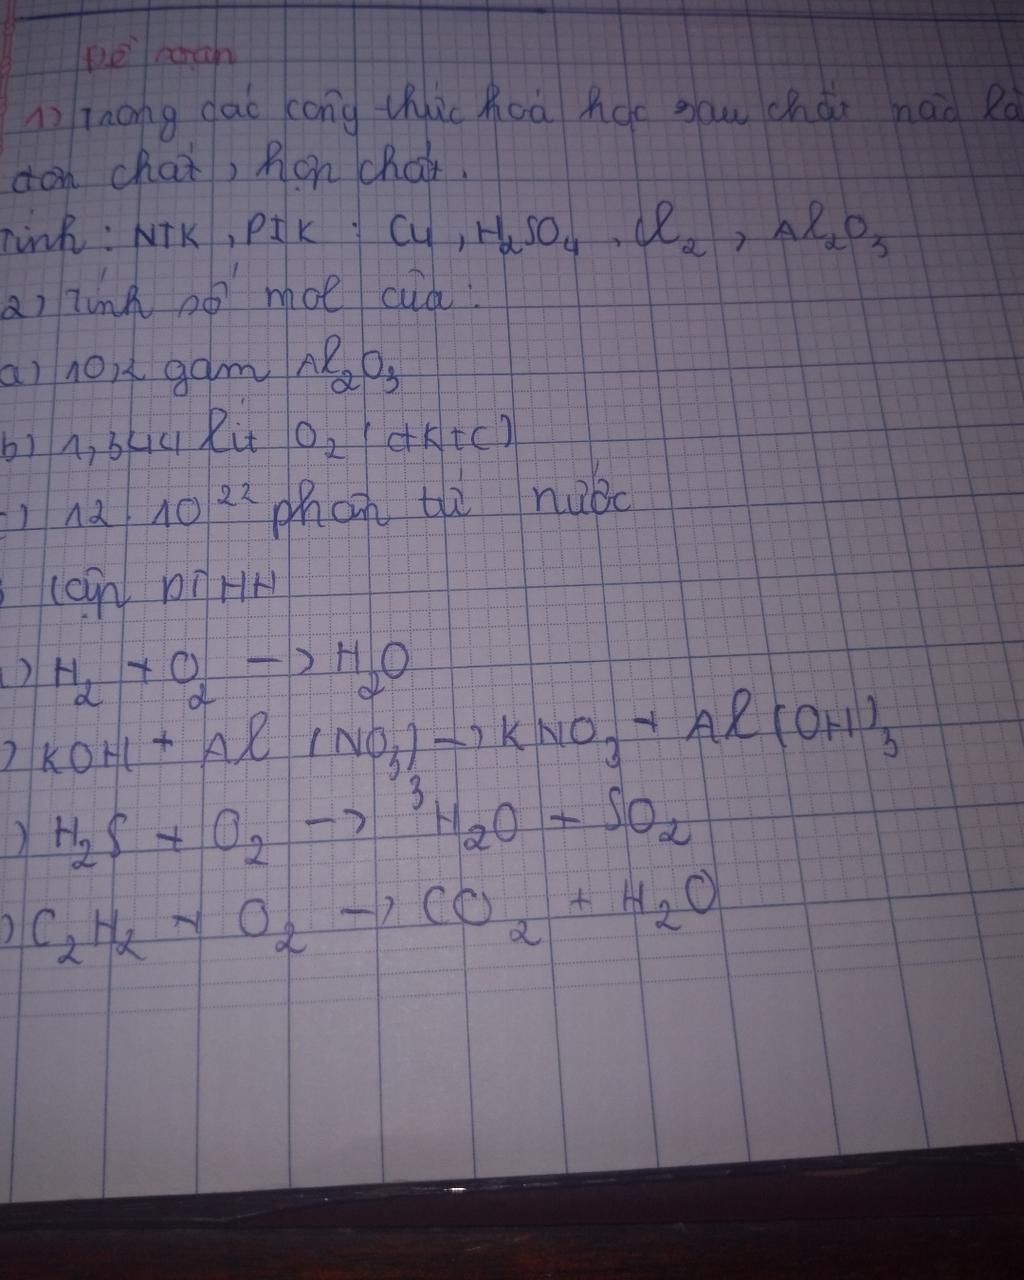 Đề
1) Trong các công thức hoá học sau chất nào là
đơn chất, hợp chất.
Tính: NTK, PTK: Cu, H₂SO₄, Cl₂, Al₂O₃
2) Tính số mol của:
a) 10,2 gam Al₂O₃
b) 1,344 lít O₂ (đktc)
) 12 10²² phân tử nước
Cân PTHH
) H₂ + O₂ -> H₂O
) KOH + Al (NO₃)₃ -> KNO₃ + Al(OH)₃
) H₂S + O₂ -> H₂O + SO₂
) C₂H₂ + O₂ -> CO₂ + H₂O